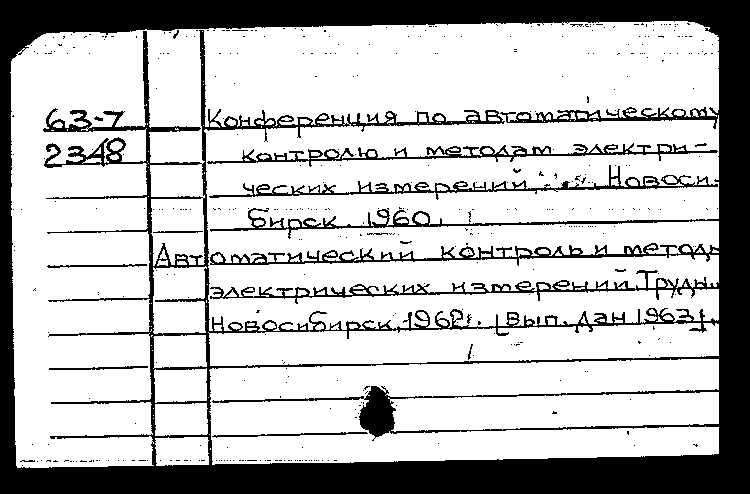 63-7 Конференция по автоматическому
2348 контролю и методам электри-
ческих измерений, Новоси-
бирск. 1960.
Автоматический контроль и методы
электрических измерений. Труды.
Новосибирск, 1962. [Вып. дан 1963].